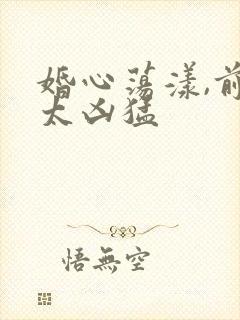 婚心荡漾,前
太凶猛
悟無空